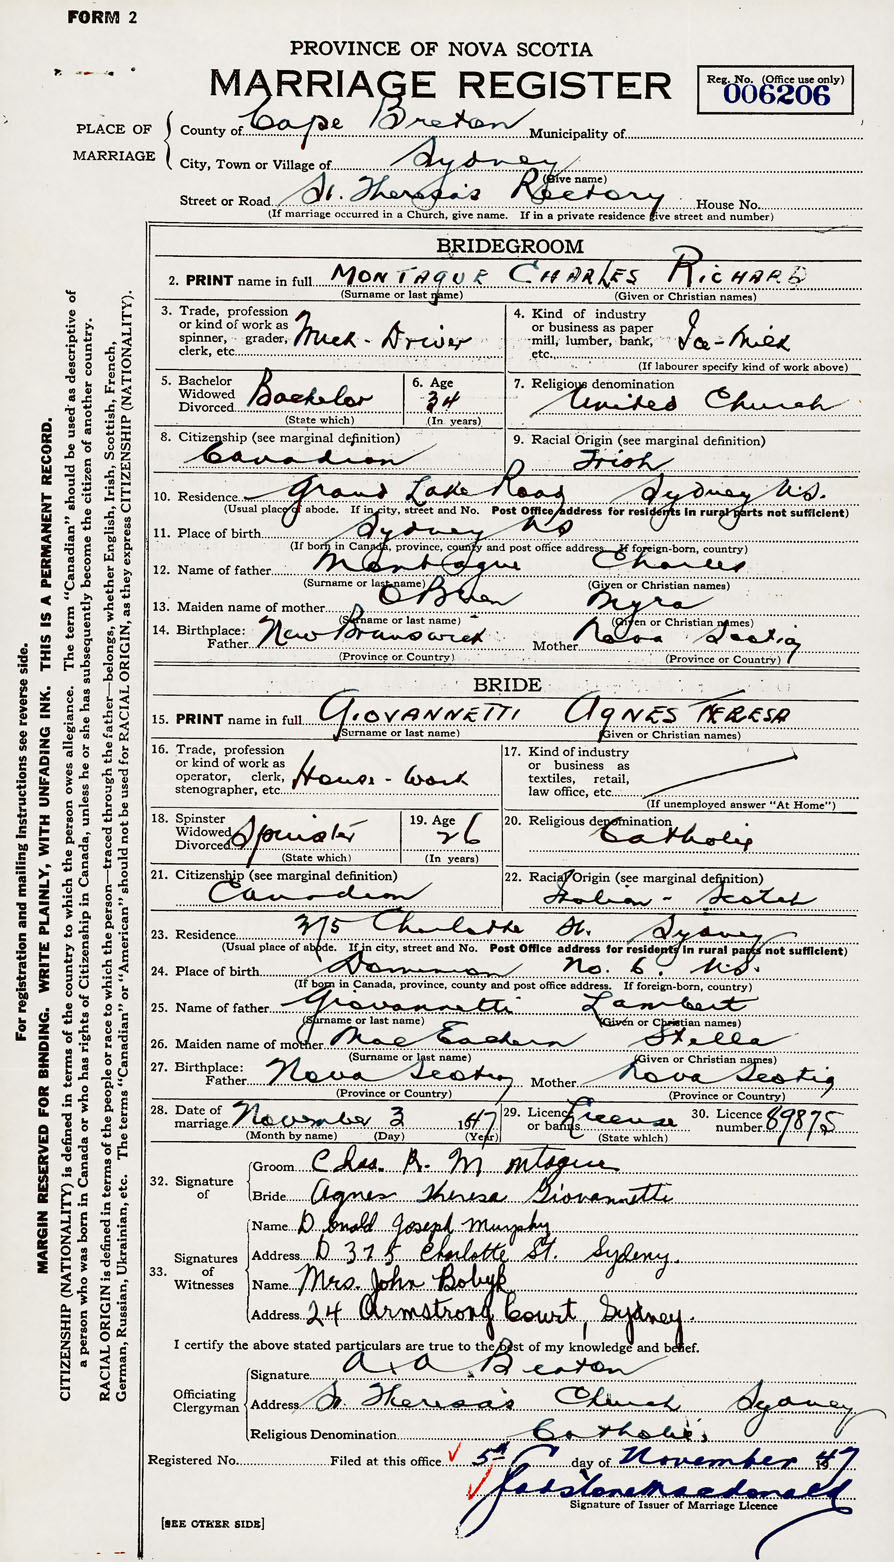 FORM 2
PROVINCE OF NOVA SCOTIA
MARRIAGE REGISTER
Reg. No. (Office use only)
006206
PLACE OF MARRIAGE
County of Cape Breton Municipality of
City, Town or Village of Sydney
(Give name)
Street or Road St. Theresa's Rectory House No.
(If marriage occurred in a Church, give name. If in a private residence give street and number)
BRIDEGROOM
2. PRINT name in full MONTAGUE CHARLES RICHARD
(Surname or last name) (Given or Christian names)
3. Trade, profession
or kind of work as
spinner, grader,
clerk, etc. Truck-Driver
4. Kind of industry
or business as paper
mill, lumber, bank,
etc. Ice-Milk
(If labourer specify kind of work above)
5. Bachelor
Widowed
Divorced Bachelor
(State which)
6. Age
34
(In years)
7. Religious denomination
United Church
8. Citizenship (see marginal definition)
Canadian
9. Racial Origin (see marginal definition)
Irish
10. Residence Grand Lake Road Sydney N.S.
(Usual place of abode. If in city, street and No. Post Office address for residents in rural parts not sufficient)
11. Place of birth Sydney NS
(If born in Canada, province, county and post office address. If foreign-born, country)
12. Name of father Montague Charles
(Surname or last name) (Given or Christian names)
13. Maiden name of mother O'Brien Myra
(Surname or last name) (Given or Christian names)
14. Birthplace:
Father New Brunswick Mother Nova Scotia
(Province or Country) (Province or Country)
BRIDE
15. PRINT name in full GIOVANNETTI AGNES TERESA
(Surname or last name) (Given or Christian names)
16. Trade, profession
or kind of work as
operator, clerk,
stenographer, etc. House-Work
17. Kind of industry
or business as
textiles, retail,
law office, etc.
(If unemployed answer "At Home")
18. Spinster
Widowed
Divorced Spinster
(State which)
19. Age
26
(In years)
20. Religious denomination
Catholic
21. Citizenship (see marginal definition)
Canadian
22. Racial Origin (see marginal definition)
Italian - Scotch
23. Residence 375 Charlotte St. Sydney
(Usual place of abode. If in city, street and No. Post Office address for residents in rural parts not sufficient)
24. Place of birth Dominion No. 6. N.S.
(If born in Canada, province, county and post office address. If foreign-born, country)
25. Name of father Giovannetti Lambert
(Surname or last name) (Given or Christian names)
26. Maiden name of mother MacEachern Stella
(Surname or last name) (Given or Christian names)
27. Birthplace:
Father Nova Scotia Mother Nova Scotia
(Province or Country) (Province or Country)
28. Date of
marriage November 3 1947
(Month by name) (Day) (Year)
29. Licence
or banns License
(State which)
30. Licence
number 89875
32. Signature of
Groom Chas. R. Montague
Bride Agnes Theresa Giovannetti
33. Signatures of Witnesses
Name Donald Joseph Murphy
Address D 375 Charlotte St. Sydeny.
Name Mrs. John Bobyk
Address 24 Armstrong Court, Sydney.
I certify the above stated particulars are true to the best of my knowledge and belief.
Officiating Clergyman
Signature Beaton
Address St. Theresa's Church Sydney
Religious Denomination Catholic
Registered No. Filed at this office 5th day of November 1947
Gladstone Macdonald
Signature of Issuer of Marriage Licence
[SEE OTHER SIDE]
For registration and mailing instructions see reverse side.
MARGIN RESERVED FOR BINDING. WRITE PLAINLY, WITH UNFADING INK. THIS IS A PERMANENT RECORD.
CITIZENSHIP (NATIONALITY) is defined in terms of the country to which the person owes allegiance. The term "Canadian" should be used as descriptive of
a person who was born in Canada or who has rights of Citizenship in Canada, unless he or she has subsequently become the citizen of another country.
RACIAL ORIGIN is defined in terms of the people or race to which the person—traced through the father—belongs, whether English, Irish, Scottish, French,
German, Russian, Ukrainian, etc. The terms "Canadian" or "American" should not be used for RACIAL ORIGIN, as they express CITIZENSHIP (NATIONALITY).